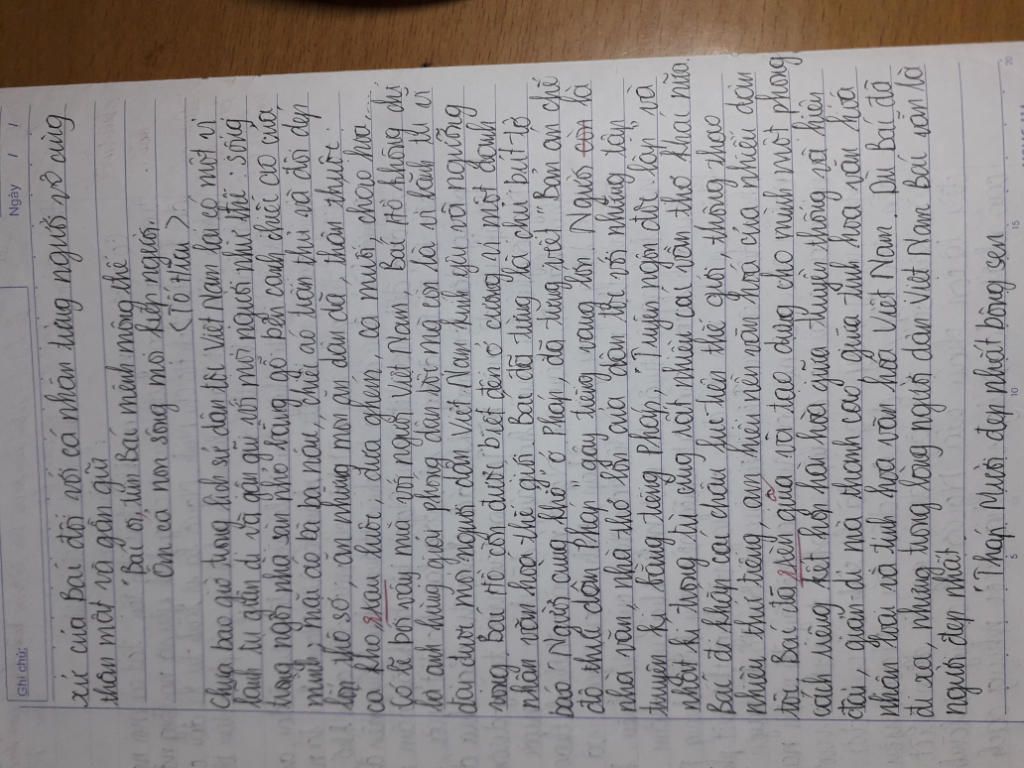 Ghi chú:
Ngày / /
xúc của Bác đối với cá nhân từng người vô cùng
thân mật và gần gũi
"Bác ơi, tim Bác mênh mông thế
Ôm cả non sông mọi kiếp người.
(Tố Hữu)
Chưa bao giờ trong lịch sử dân tộc Việt Nam lại có một vị
lãnh tụ giản dị và gần gũi với mọi người như thế: sống
trong ngôi nhà sàn nhỏ bằng gỗ bên cạnh chiếc ao của
mình, mặc áo bà ba nâu, chiếc áo trấn thủ và đôi dép
lốp thô sơ, ăn những món ăn dân dã, thân thuộc:
cá kho, rau luộc, dưa ghém, cà muối, cháo hoa...
Có lẽ bởi vậy mà với người Việt Nam, Bác Hồ không chỉ
là anh hùng giải phóng dân tộc mà còn là vị lãnh tụ vĩ
đại được mọi người dân Việt Nam kính yêu và ngưỡng
vọng. Bác Hồ còn được biết đến ở cương vị một danh
nhân văn hoá thế giới. Bác đã từng là chủ bút tờ
báo "Người cùng khổ" ở Pháp, đã từng viết "Bản án chế
độ thực dân Pháp" gây tiếng vang lớn. Người còn là
nhà văn, nhà thơ lớn của dân tộc với những tập
truyện, kí bằng tiếng Pháp, Tuyên ngôn độc lập, và
nhật kí trong tù cùng rất nhiều các vần thơ khác nữa.
Bác đi khắp các châu lục trên thế giới, thông thạo
nhiều thứ tiếng, am hiểu nền văn hoá của nhiều dân
tộc. Bác đã trải qua và tạo dựng cho mình một phong
cách riêng: kết hợp hài hoà giữa truyền thống và hiện
đại, giản dị mà thanh cao, giữa tinh hoa văn hoá
nhân loại và tinh hoa văn hoá Việt Nam. Dù Bác đã
đi xa, nhưng trong lòng người dân Việt Nam Bác vẫn là
người đẹp nhất
"Tháp Mười đẹp nhất bông sen
5 10 15 20